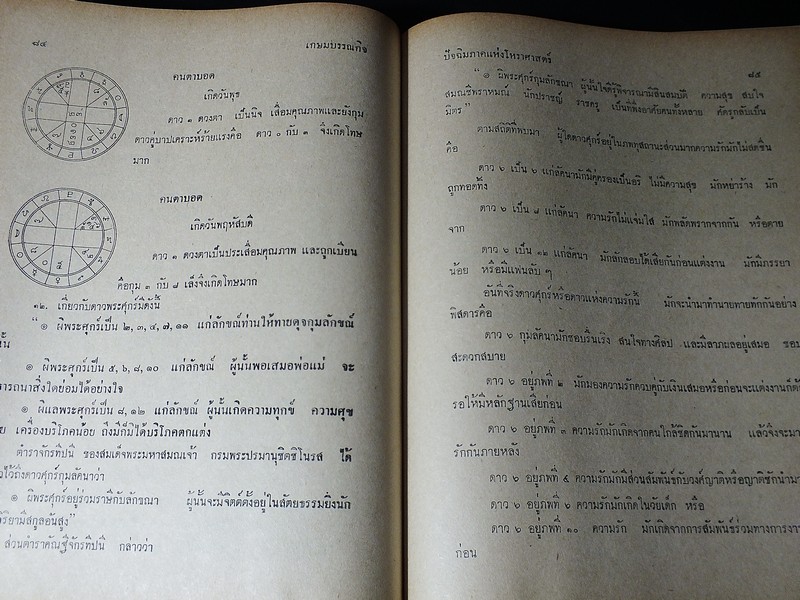 ๘๔ เกษมบรรณกิจ
คนตาบอด
เกิดวันพุธ
ดาว ๑ ดวงตา เป็นนิจ เสื่อมคุณภาพและยังกุม
ดาวคู่บาปเคราะห์ร้ายแรงคือ ดาว ๐ กับ ๓ จึงเกิดโทษ
มาก
คนตาบอด
เกิดวันพฤหัสบดี
ดาว ๑ ดวงตาเป็นประเสื่อมคุณภาพ และถูกเบียน
คือกุม ๓ กับ ๘ เล็งจึงเกิดโทษมาก
๑๒. เกี่ยวกับดาวพระศุกร์มีดังนี้
"๑ ผิพระศุกร์เป็น ๒, ๓, ๔, ๗, ๑๑ แก่ลักขณ์ท่านให้ทายดุจกุมลักขณ์
นั้น
๑ ผิพระศุกร์เป็น ๕, ๖, ๘, ๑๐ แก่ลักขณ์ ผู้นั้นพอเสมอพ่อแม่ จะ
ารถนาสิ่งใดย่อมได้อย่างใจ
๑ ผิแลพระศุกร์เป็น ๘, ๑๒ แก่ลักขณ์ ผู้นั้นเกิดความทุกข์ ความศุข
ย เครื่องบริโภคน้อย ถึงมีก็มิได้บริโภคตกแต่ง
ตำราจักรทีปนี ของสมเด็จพระมหาสมณเจ้า กรมพระปรมานุชิตชิโนรส ได้
วไว้ถึงดาวศุกร์กุมลัคนาว่า
๑ ผิพระศุกร์อยู่ร่วมราษีกับลักขณา ผู้นั้นจะมีจิตต์ตั้งอยู่ในสัตยธรรมยิ่งนัก
ริยามีสกูลอันสูง"
ส่วนตำราคัณฐีจักรทีปนี กล่าวว่า
ปัจฉิมภาคแห่งโหราศาสตร์ ๘๕
"๑ ผิพระศุกร์กุมลักขณา ผู้นั้นใจดีรู้พิจารณามีสินสมบัติ ความสุข สบใจ
สมณชีพราหมณ์ นักปราชญ์ ราชครู เป็นที่พึ่งอาศัยคนทั้งหลาย ศัตรูกลับเป็น
มิตร"
ตามสถิติที่พบมา ผู้ใดดาวศุกร์อยู่ในภพทุสถานะส่วนมากความรักมักไม่สดชื่น
คือ
ดาว ๖ เป็น ๖ แก่ลัคนามักมีคู่ครองเป็นอริ ไม่มีความสุข มักหย่าร้าง มัก
ถูกทอดทิ้ง
ดาว ๖ เป็น ๘ แก่ลัคนา ความรักไม่แจ่มใส มักพลัดพรากจากกัน หรือตาย
จาก
ดาว ๖ เป็น ๑๒ แก่ลัคนา มักลักลอบได้เสียกันก่อนแต่งงาน มักมีภรรยา
น้อย หรือมีแฟนลับ ๆ
อันที่จริงดาวศุกร์หรือดาวแห่งความรักนี้ มักจะนำมาทำนายทายทักกันอย่าง
พิสดารคือ
ดาว ๖ กุมลัคนามักชอบรื่นเริง สนใจทางศิลป และมีลาภผลอยู่เสมอ ชอบ
สะดวกสบาย
ดาว ๖ อยู่ภพที่ ๒ มักมองความรักควบคู่กับเงินเสมอหรือก่อนจะแต่งงานก็ต้
รอให้มีหลักฐานเสียก่อน
ดาว ๖ อยู่ภพที่ ๓ ความรักมักเกิดจากคนใกล้ชิดกันมานาน แล้วจึงจะมา
รักกันภายหลัง
ดาว ๖ อยู่ภพที่ ๔ ความรักมักมีส่วนสัมพันธ์กับวงศ์ญาติหรือญาติชักนำมา
ดาว ๖ อยู่ภพที่ ๖ ความรักมักเกิดในวัยเด็ก หรือ
ดาว ๖ อยู่ภพที่ ๑๐ ความรัก มักเกิดจากการสัมพันธ์ร่วมทางการงาน
ก่อน